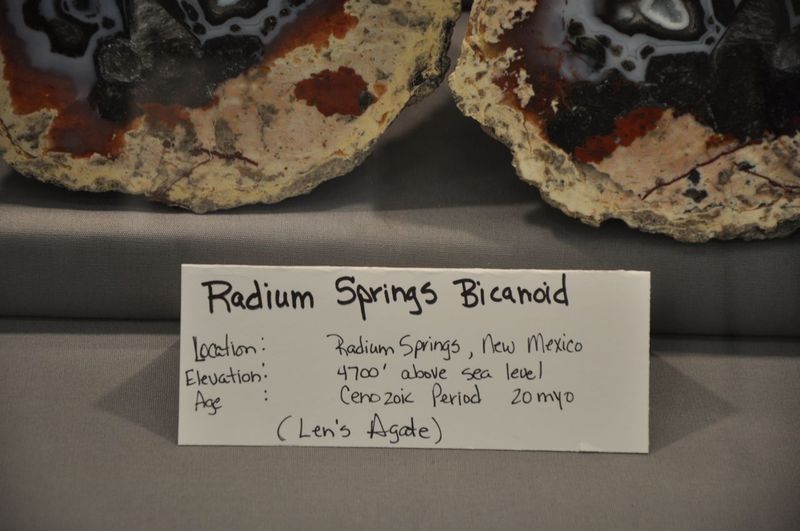 Radium Springs Bicanoid
Location: Radium Springs, New Mexico
Elevation: 4700' above sea level
Age : Cenozoic Period 20 myo
(Len's Agate)